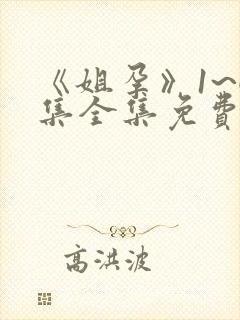 《姐孕》1~
集全集免费
高洪波